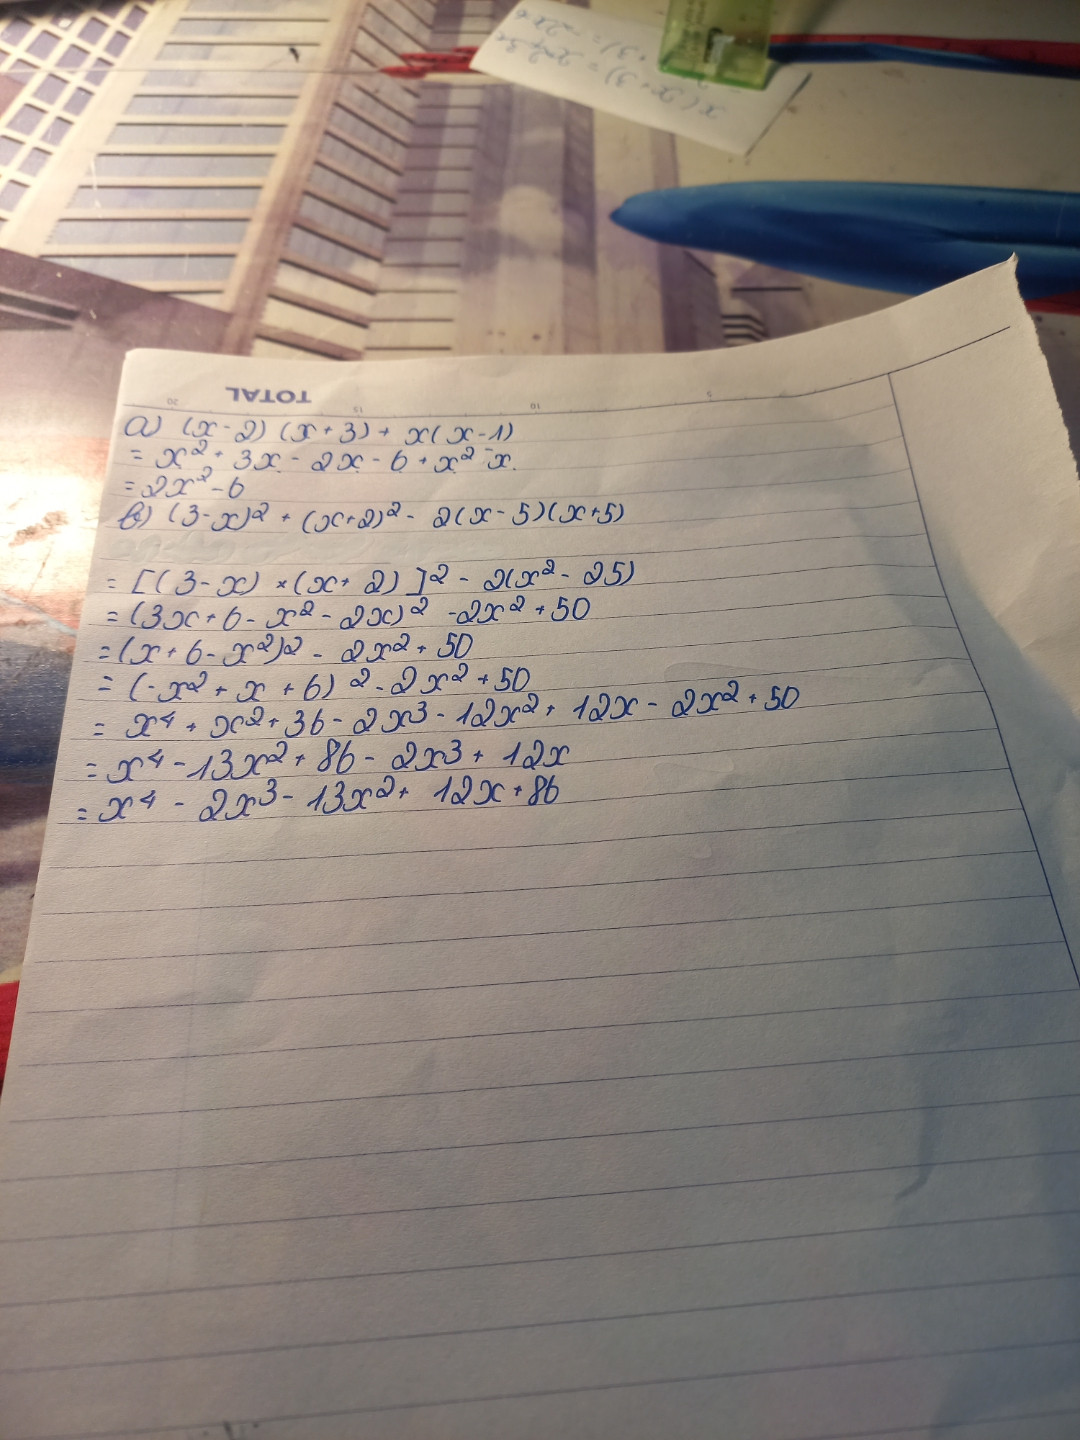 x(x+3)=x^2+3x
TOTAL
20 15 10 5
a) (x-2) (x+3) + x(x-1)
= x² + 3x - 2x - 6 + x² - x
= 2x² - 6
b) (3-x)² + (x+2)² - 2(x-5)(x+5)
= [(3-x) × (x+2)]² - 2(x² - 25)
= (3x+6 - x² - 2x)² - 2x² + 50
= (x+6 - x²)² - 2x² + 50
= (-x² + x + 6)² - 2x² + 50
= x⁴ + x² + 36 - 2x³ - 12x² + 12x - 2x² + 50
= x⁴ - 13x² + 86 - 2x³ + 12x
= x⁴ - 2x³ - 13x² + 12x + 86